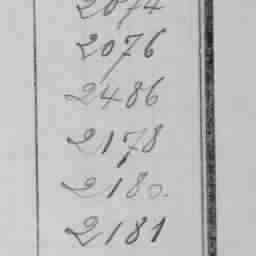 2074
2076
2486
2178
2180.
2181